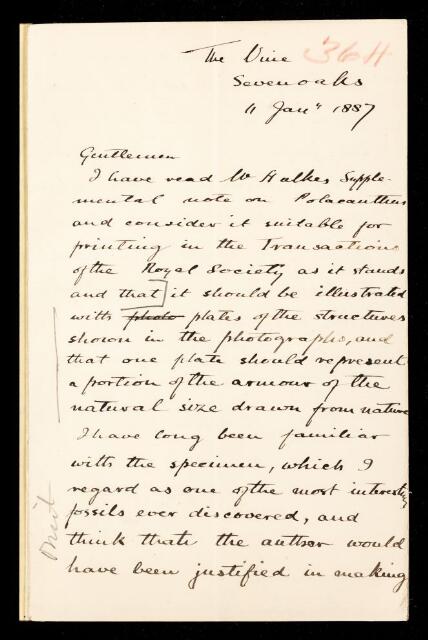 The Vine 364
Sevenoaks
11 Jany 1887
Gentlemen
I have read Mr Hulkes Supple-
mental note on Polacanthus
and consider it suitable for
printing in the Transactions
of the Royal Society as it stands
and that] it should be illustrated
with photo plates of the structures
shown in the photographs, and
that one plate should represent
a portion of the armour of the
natural size drawn from nature
I have long been familiar
with the specimen, which I
regard as one of the most interesting
fossils ever discovered, and
think that the author would
have been justified in making
Print